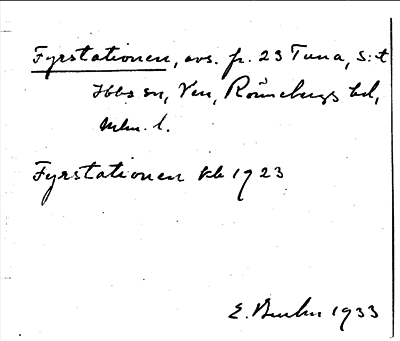 Fyrstationen, avs. fr. 23 Tuna, S:t
Ibbs sn, Ven, Rönnebergs hd,
Mlm. l.
Fyrstationen kb 1923
E. 1933